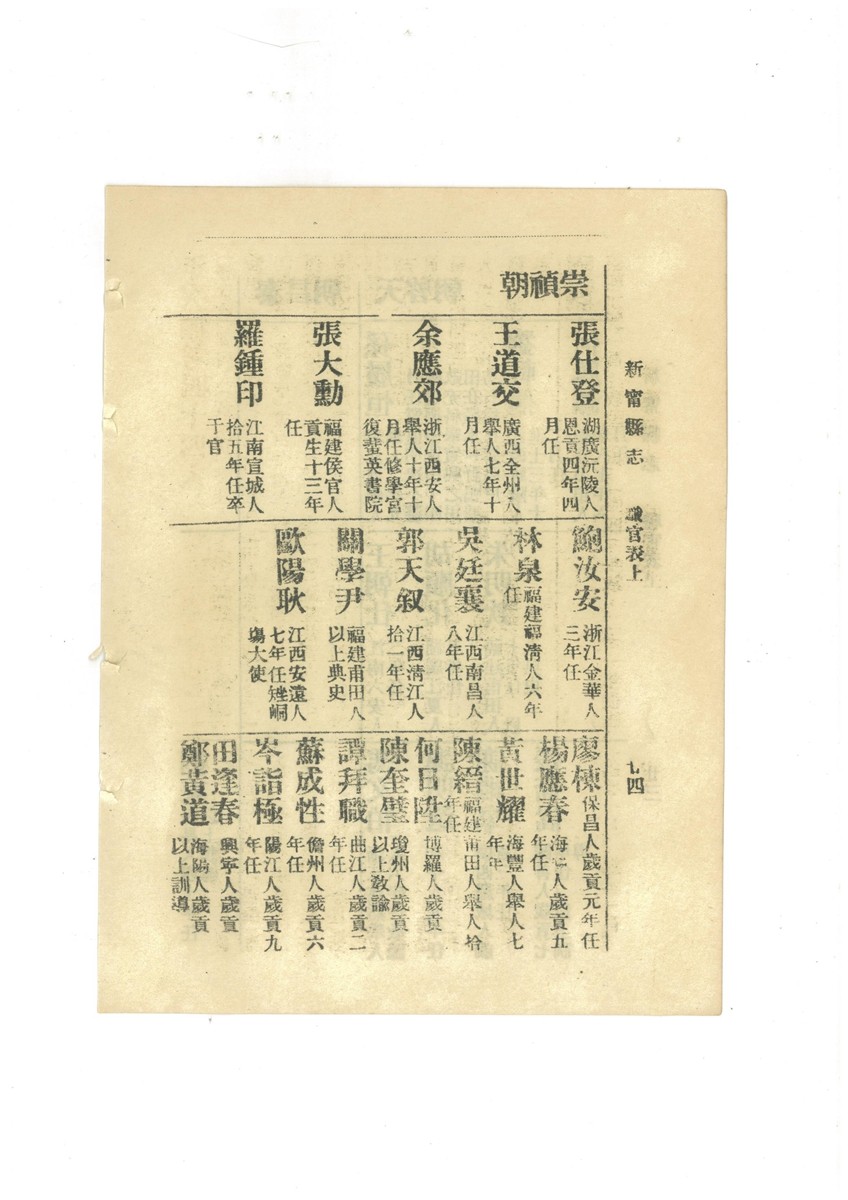 新甯縣志
職官表上
七四
崇禎朝
張仕登
湖廣沅陵人
恩貢四年四
月任
王道交
廣西全州人
舉人七年十
月任
余應郊
浙江西安人
舉人十年十
月任修學宮
復蜚英書院
張大勳
福建侯官人
貢生十三年
任
羅鍾印
江南宣城人
拾五年任卒
于官
鮑汝安
浙江金華人
三年任
林泉
福建福清人六年
任
吳廷襄
江西南昌人
八年任
郭天叙
江西清江人
拾一年任
關學尹
福建甫田人
以上典史
歐陽耿
江西安遠人
七年任矬峒
塲大使
廖棟
保昌人歲貢元年任
楊應春
海 人歲貢五
年任
黃世耀
海豐人舉人七
年
陳縉
福建莆田人舉人拾
年任
何日陞
博羅人歲貢
陳奎璧
瓊州人歲貢
以上敎諭
譚拜職
曲江人歲貢二
年任
蘇成性
儋州人歲貢六
年任
岑詣極
陽江人歲貢九
年任
田逢春
興寧人歲貢
鄭黃道
海陽人歲貢
以上訓導